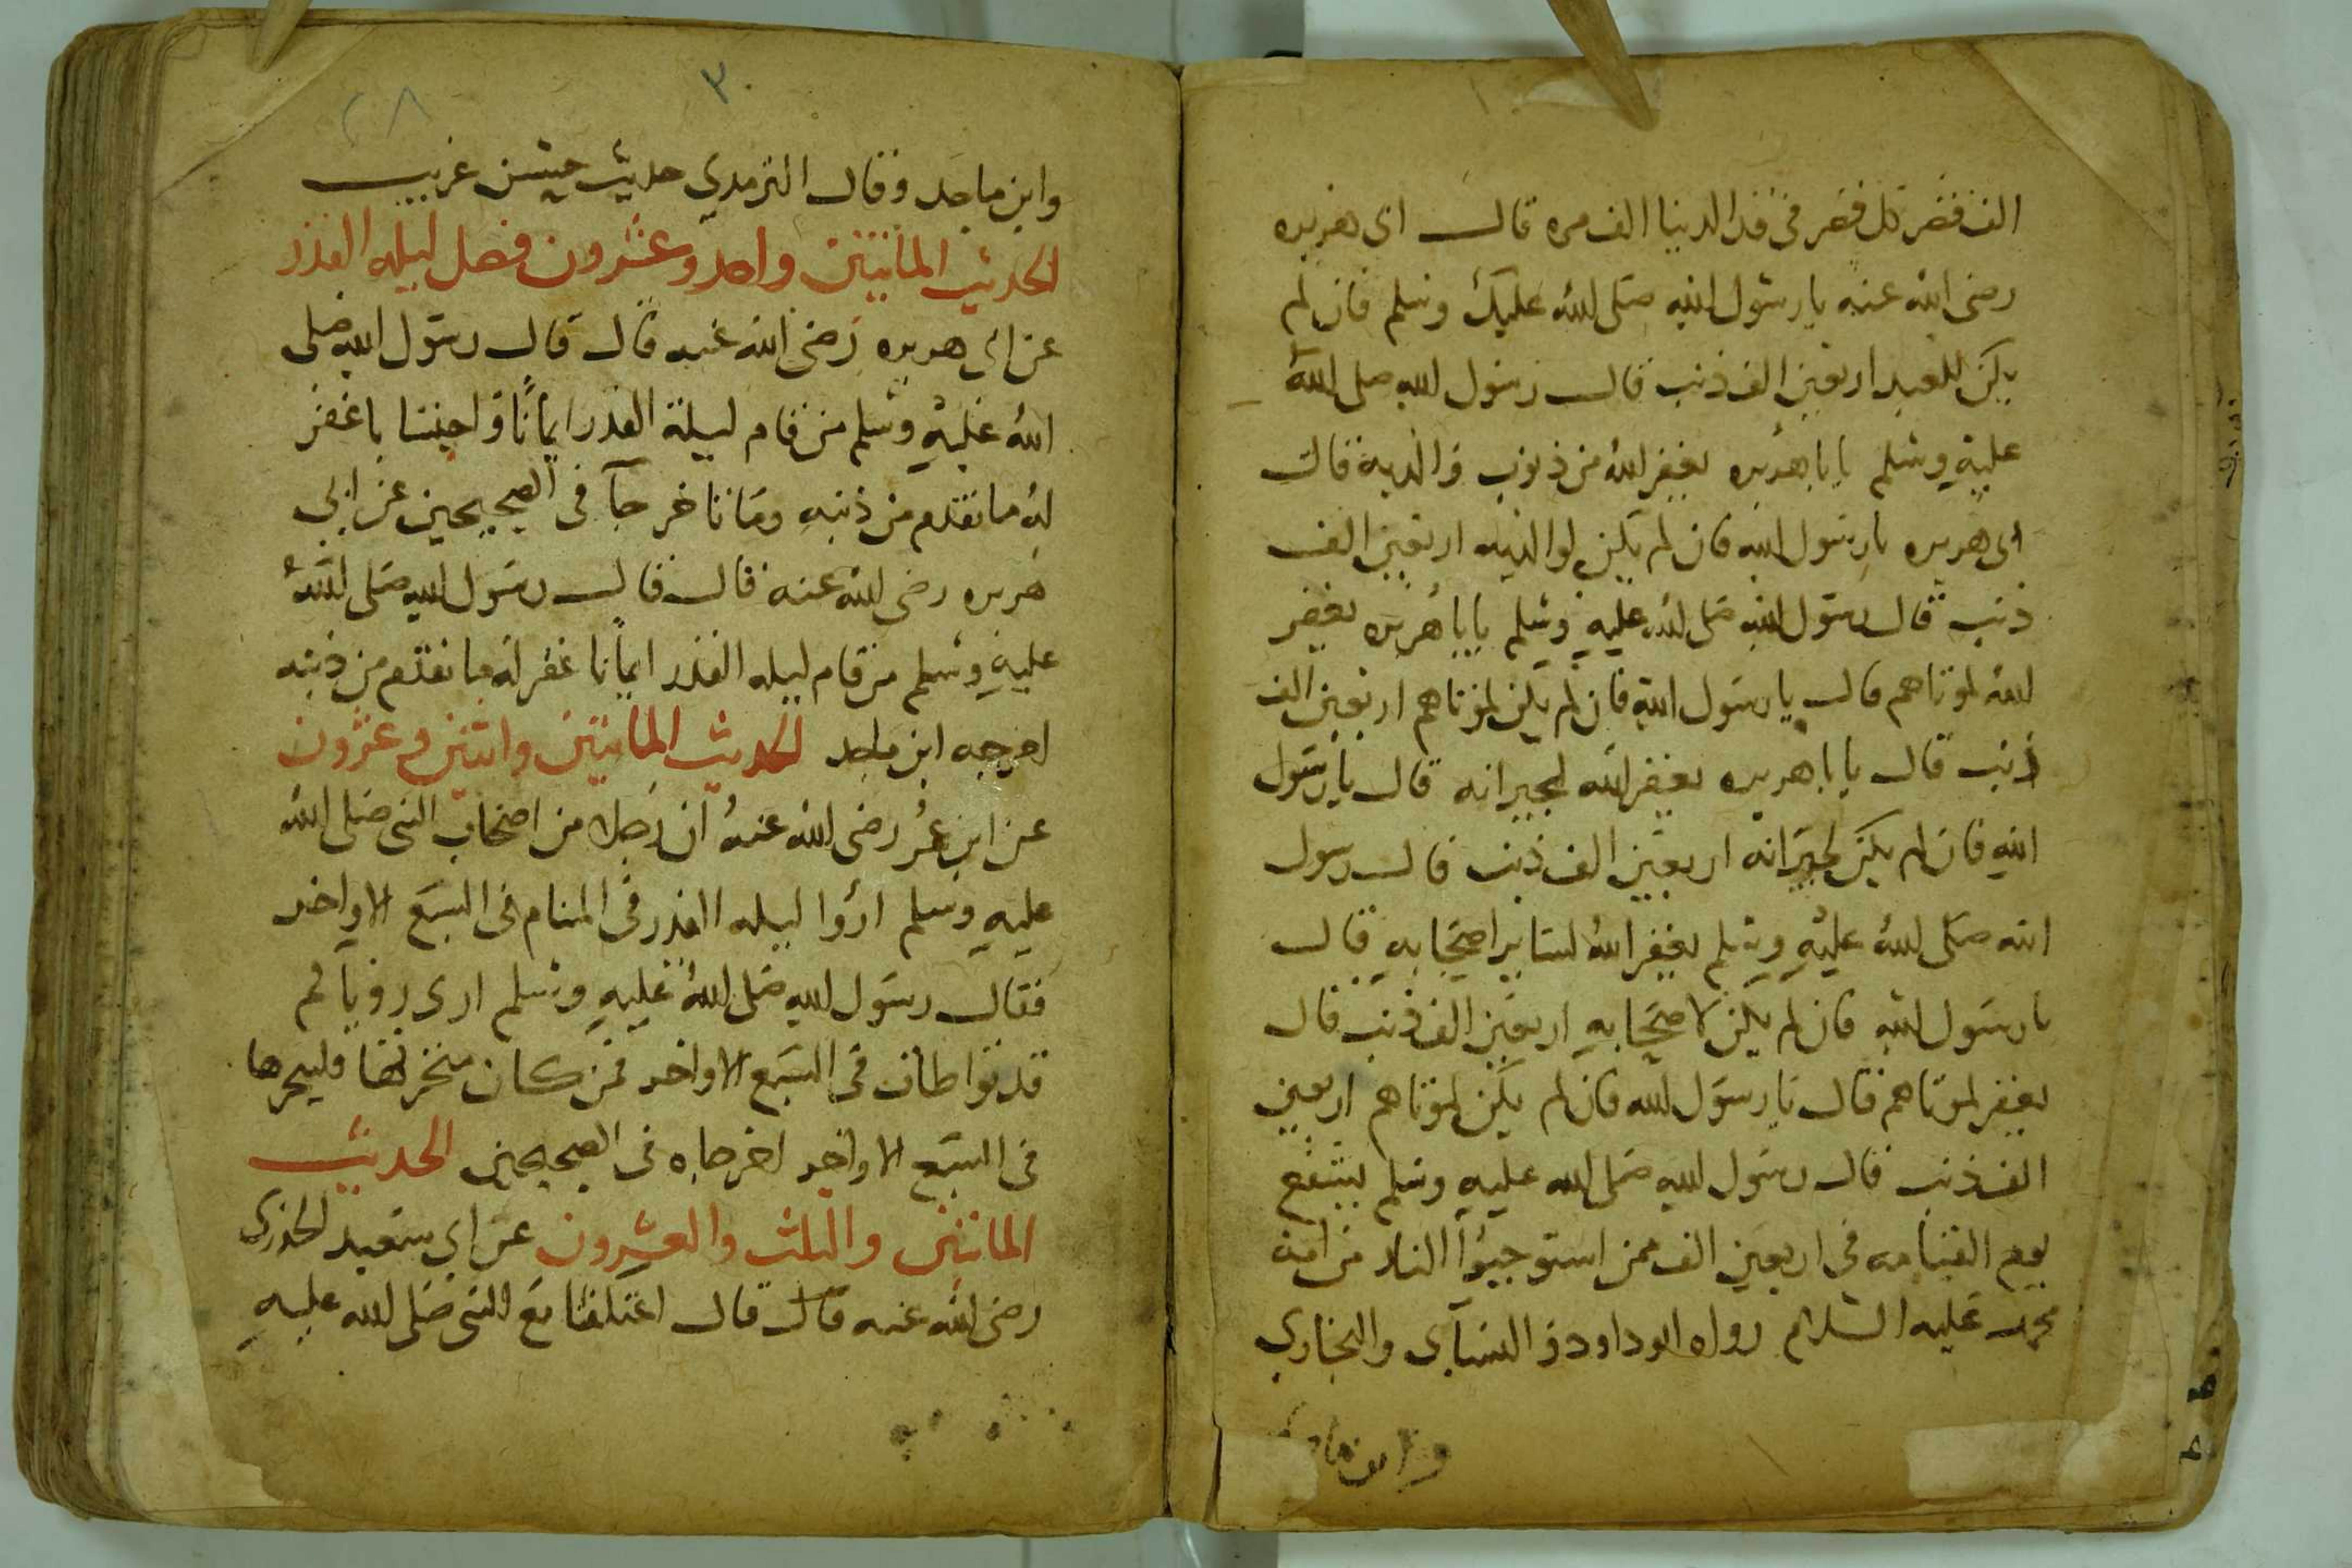 الف قصر كل قصر في قد الدنيا الف مره قال ابى هريره
رضى الله عنه يا رسول الله صلى الله عليك وسلم فان لم
يكن للعبد اربعين الف ذنب قال رسول الله صلى الله
عليه وسلم يابا هريره يغفر الله من ذنوب والديه قال
ابى هريره يا رسول الله فان لم يكن لوالديه اربعين الف
ذنب قال رسول الله صلى الله عليه وسلم يابا هريره يغفر
الله لموتاهم قال يا رسول الله فان لم يكن لموتاهم اربعين الف
ذنب قال يابا هريره يغفر الله لجيرانه قال يا رسول
الله فان لم يكن لجيرانه اربعين الف ذنب قال رسول
الله صلى الله عليه وسلم يغفر الله لساير اصحابه قال
يا رسول الله فان لم يكن لاصحابه اربعين الف ذنب قال
يغفر لموتاهم قال يا رسول الله فان لم يكن لموتاهم اربعين
الف ذنب قال رسول الله صلى الله عليه وسلم يشفع
يوم القيامه في اربعين الف ممن استوجبوا النار من امة
محمد عليه السلام رواه ابو داود و النسآى والبخاري
وابن ماجه
٣٠
٢٨
وابن ماجه وقال الترمدي حديث حسن غريب
الحديث المائتين واحد وعشرون فضل ليله القدر
عن ابى هريره رضى الله عنه قال قال رسول الله صلى
الله عليه وسلم من قام ليلة القدر ايمانًا واحتسابا غفر
له ما تقدم من ذنبه وما تاخر جآ فى الصحيحين عن ابي
هريره رضى الله عنه قال قال رسول الله صلى الله
عليه وسلم من قام ليله القدر ايمانا غفر له ما تقدم من ذنبه
اخرجه ابن ماجه الحديث المائتين واثنين وعشرون
عن ابن عمر رضى الله عنهُ ان رجلا من اصحاب النبى صلى الله
عليه وسلم ارؤا ليله القدر فى المنام فى السبع الاواخر
فقال رسول الله صلى الله عليه وسلم ارى روياكم
قد تواطات فى السبع الاواخر فمن كان متحريها فليتحرها
فى السبع الاواخر اخرجاه فى الصحيحين الحديث
المائتين والثلث والعشرون عن ابي سعيد الخدري
رضى الله عنه قال قال اعتكفنا مع النبى صلى الله عليه